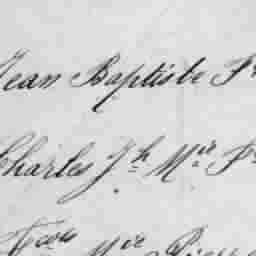 Jean Baptiste Fr
Charles Jh Mie Fr
Fcois Mie Pierre